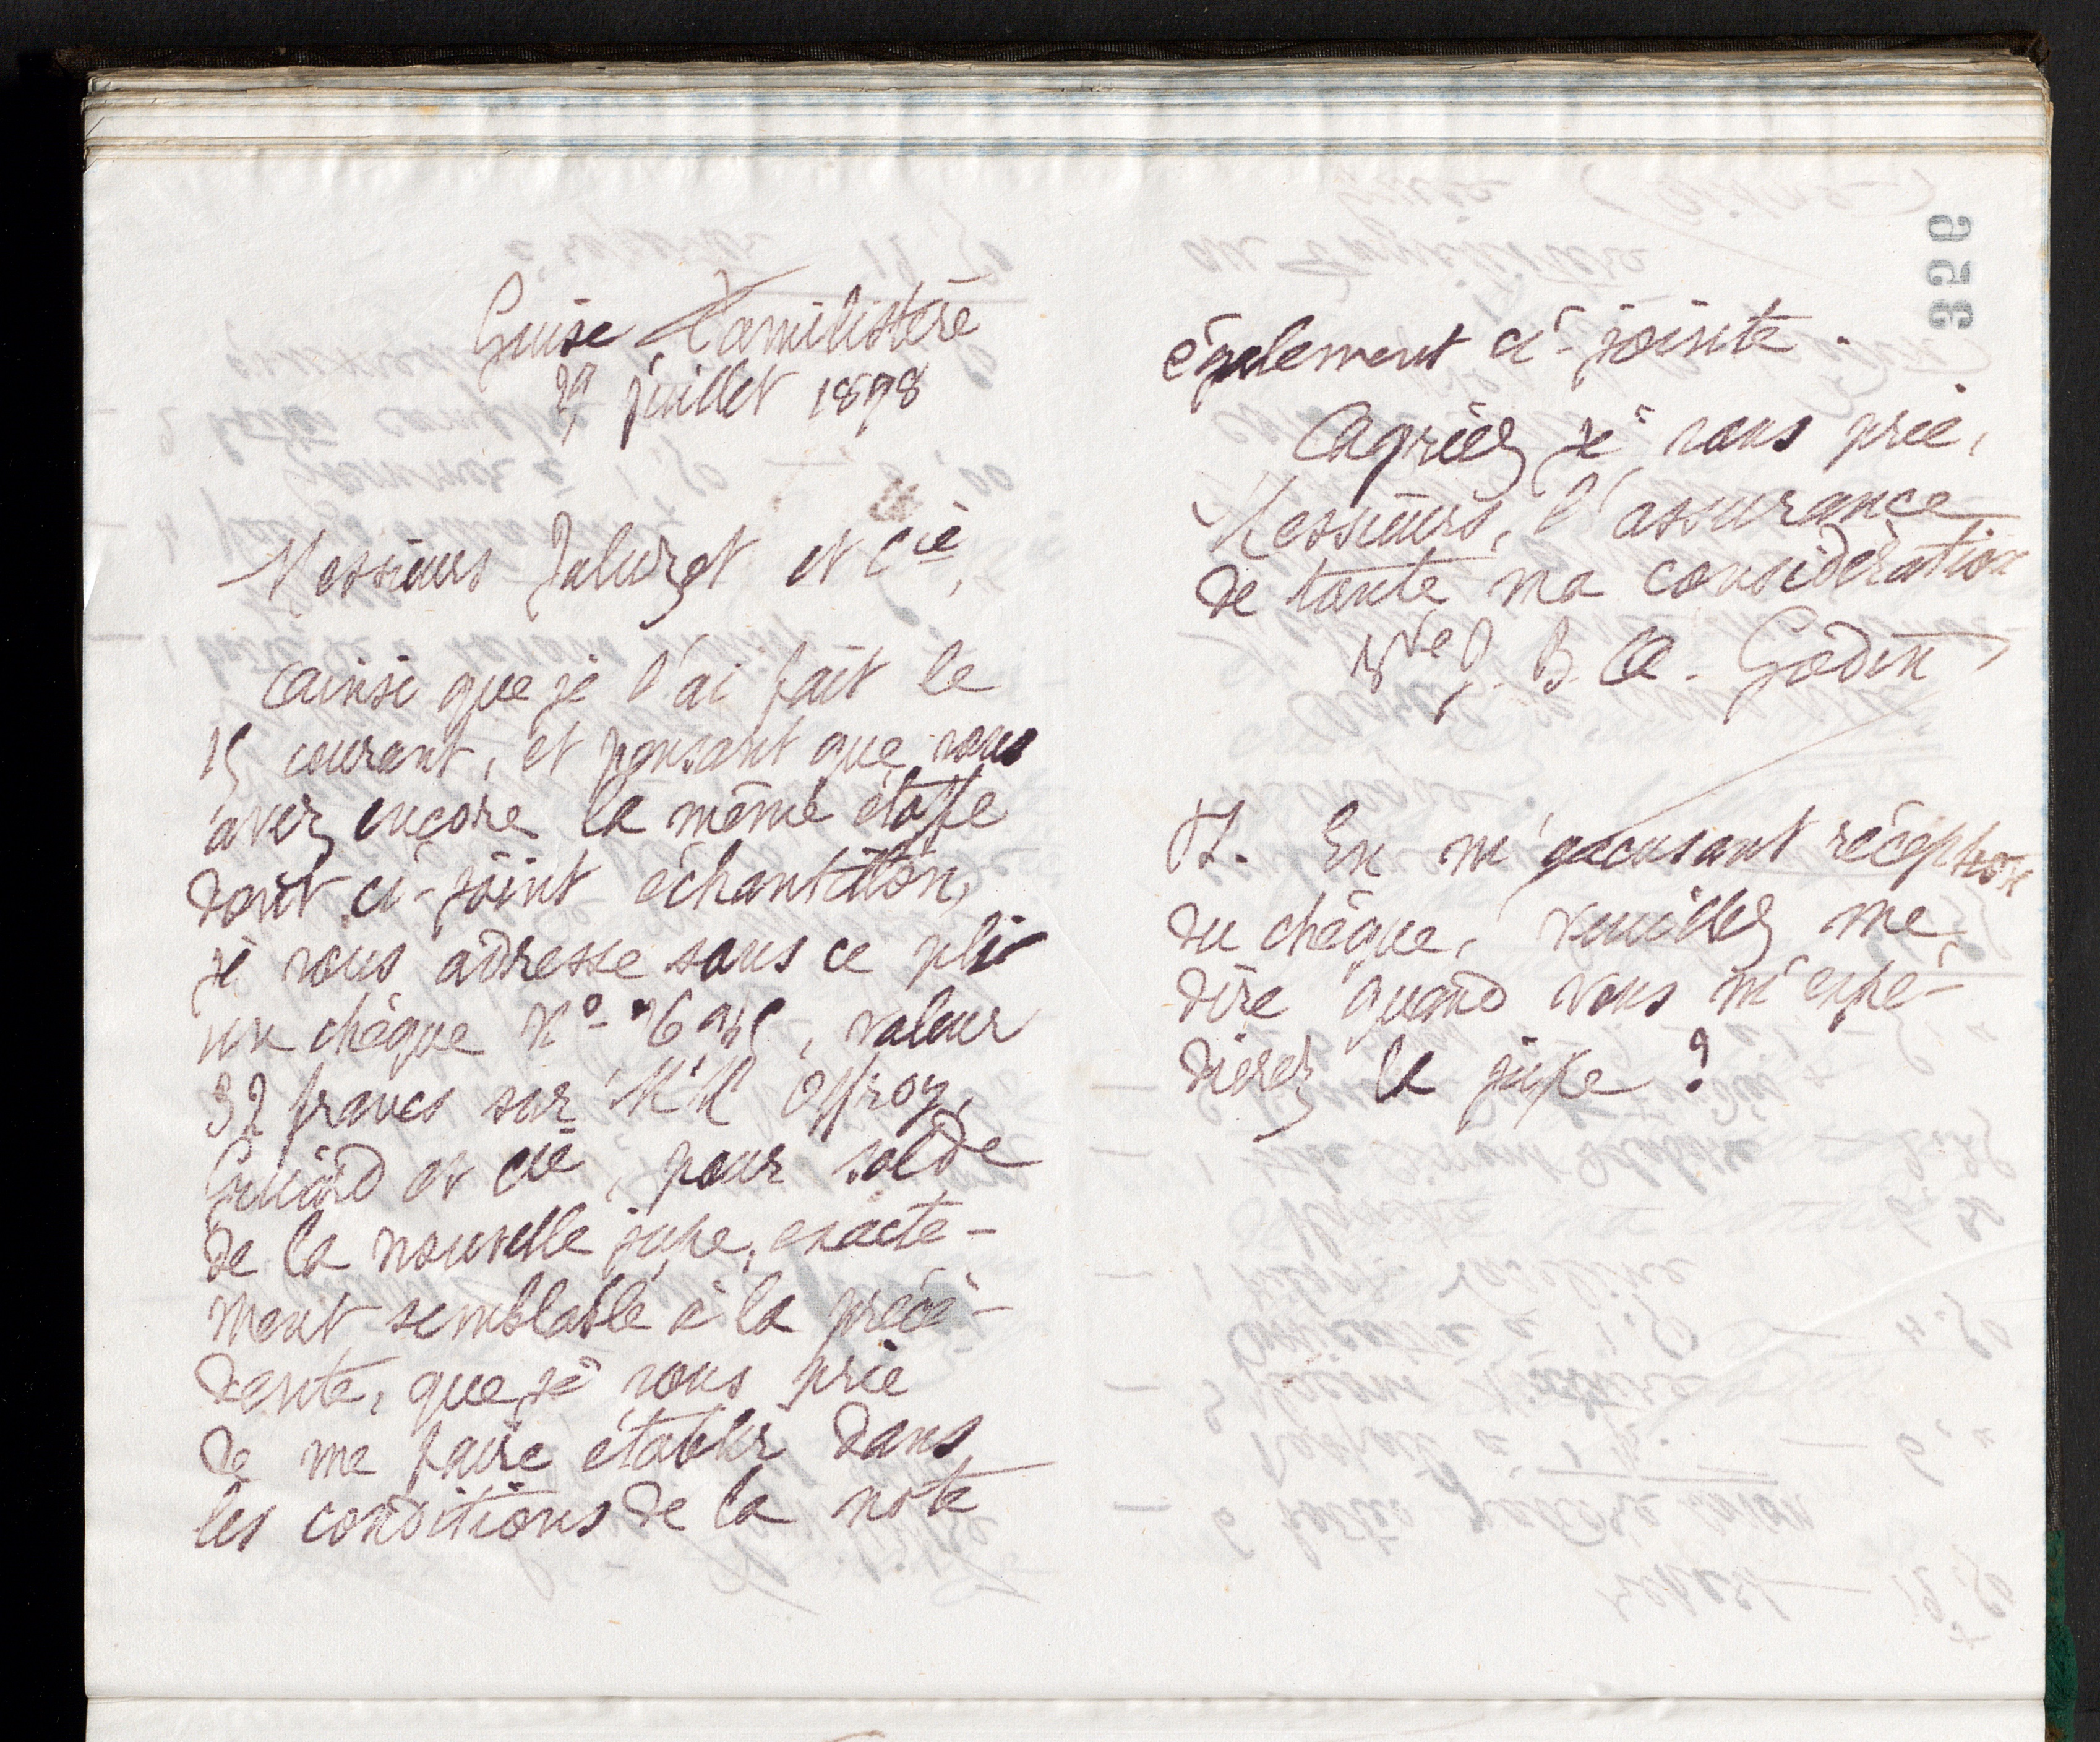 Guise Familistère
29 juillet 1898
Messieurs Jaluzot et Cie,
Ainsi que je l'ai fait le
15 courant, et pensant que vous
avez encore la même étoffe
dont ci-joint échantillon,
je vous adresse sous ce pli
un chèque No , valeur
32 francs sur MM Offroy,
Guiard et Cie, pour solde
de la nouvelle jupe, exacte-
ment semblable à la précé-
dente, que je vous prie
de me faire établir dans
les conditions de la note
358
également ci-jointe.
Agréez je vous prie,
Messieurs, l'assurance
de toute ma considération
Vve J. B. A. Godin
P.S. En m'accusant réception
du chèque, veuillez me
dire quand vous m'expé-
dierez la jupe ?